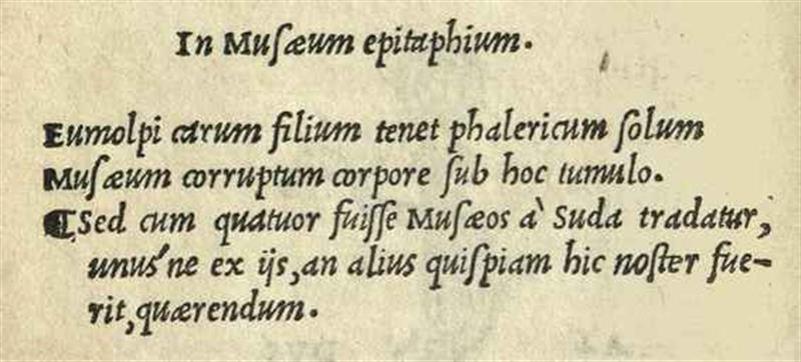 In Musæum epitaphium.
Eumolpi carum filium tenet phalericum solum
Musæum corruptum corpore sub hoc tumulo.
¶Sed cum quatuor fuisse Musæos à Suda tradatur,
unus'ne ex ijs, an alius quispiam hic noster fue-
rit, quærendum.